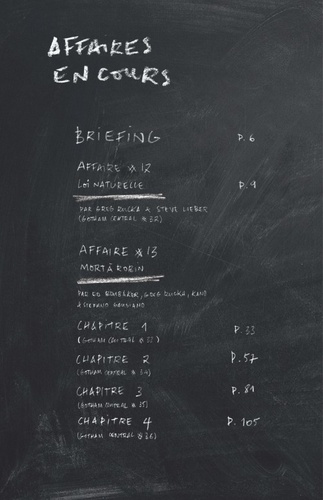 AFFAIRES
EN COURS
BRIEFING P. 6
AFFAIRE #12
LOI NATURELLE P. 9
PAR GREG RUCKA & STEVE LIEBER
(GOTHAM CENTRAL #32)
AFFAIRE #13
MORT À ROBIN
PAR ED BRUBAKER, GREG RUCKA, KANO
& STEFANO GAUDIANO
CHAPITRE 1 P. 33
(GOTHAM CENTRAL #33)
CHAPITRE 2 P. 57
(GOTHAM CENTRAL #34)
CHAPITRE 3 P. 81
(GOTHAM CENTRAL #35)
CHAPITRE 4 P. 105
(GOTHAM CENTRAL #36)